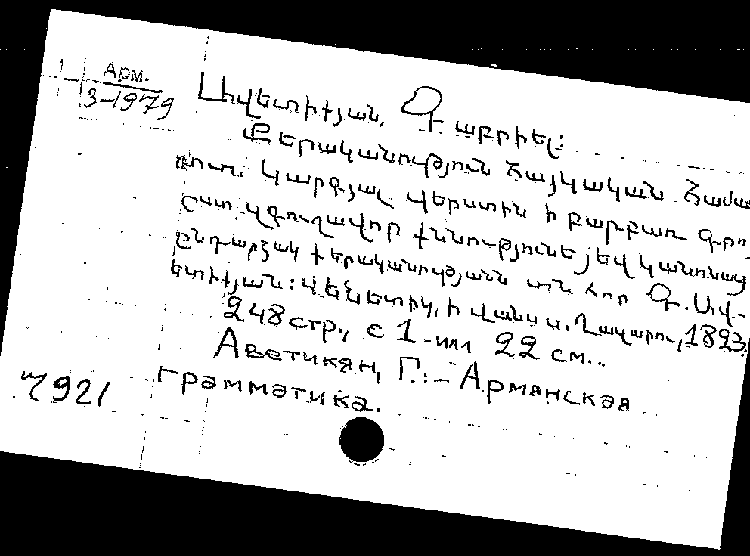 1 Арм.
3-1979
Ավետիքյան, Գաբրիել:
Քերականություն հայկական համա
ռոտ. Կարգյալ վերստին ի բարբառ գրո
ըստ կզուղավոր քննությունե յեվ կանոնաց
ընդարձակ քերականությանն տն հոր Գ. Ավ-
ետիքյան: Վենետիկ, ի վանս ս. Ղազարու, 1823,
248 стр., с 1-ил 22 см..
Аветикян, Г.:-Армянская
грамматика.
7921